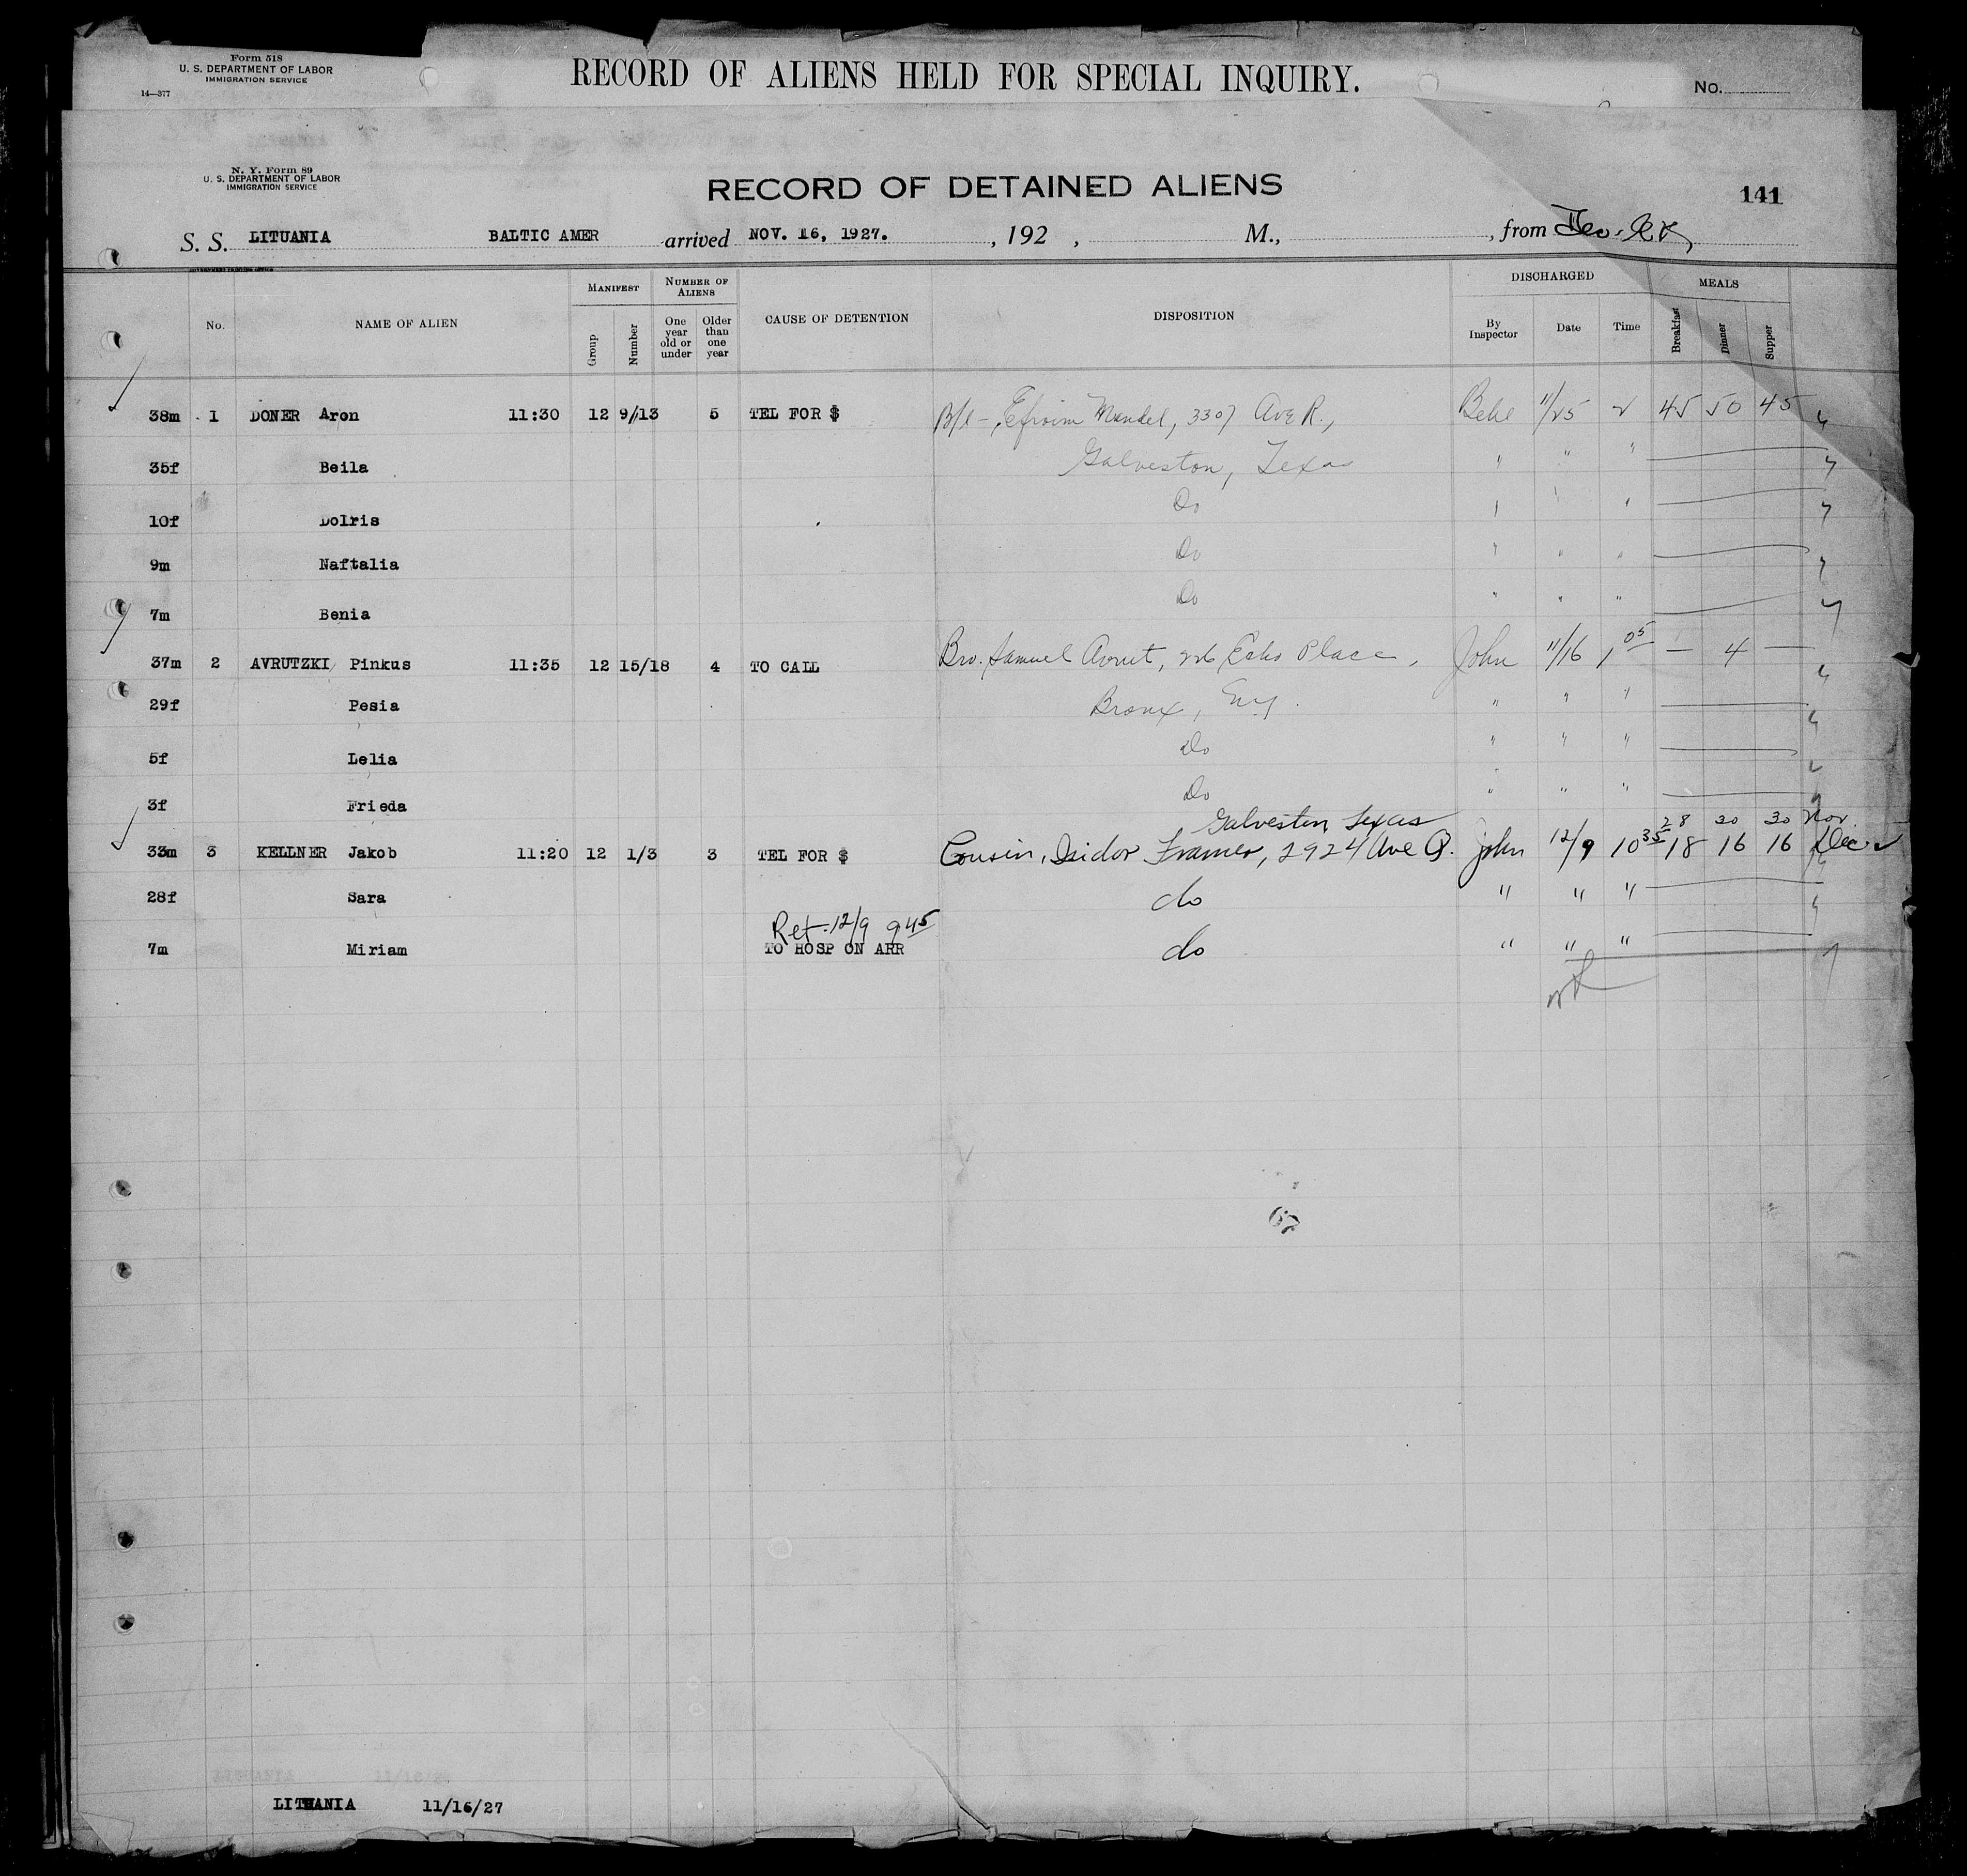 Form 518
U. S. DEPARTMENT OF LABOR
IMMIGRATION SERVICE
14—377
RECORD OF ALIENS HELD FOR SPECIAL INQUIRY.
No.
N. Y. Form 89
U. S. DEPARTMENT OF LABOR
IMMIGRATION SERVICE
RECORD OF DETAINED ALIENS
141
S. S. LITUANIA BALTIC AMER arrived NOV. 16, 1927. , 192 , M., , from
No. NAME OF ALIEN MANIFEST Group Number NUMBER OF ALIENS One year old or under Older than one year CAUSE OF DETENTION DISPOSITION DISCHARGED By Inspector Date Time MEALS Breakfast Dinner Supper
38m 1 DONER Aron 11:30 12 9/13 5 TEL FOR $ B/l - Efroim Mandel, 3307 Ave R., 11/25 45 50 45
35f Beila Galveston, Texas " " "
10f Dolris Do
9m Naftalia Do " " "
7m Benia Do " " "
37m 2 AVRUTZKI Pinkus 11:35 12 15/18 4 TO CALL Bro. Samuel Avrut, 226 Echo Place, John 11/16 1 05 — 4 —
29f Pesia Bronx, " " "
5f Lelia Do " " "
3f Frieda Do " " "
Galveston, Texas 28 30 30 Nov.
33m 3 KELLNER Jakob 11:20 12 1/3 3 TEL FOR $ Cousin, Isidor Framer, 2924 Ave John 12/9 10 35 18 16 16 Dec
28f Sara do " " "
Ret. 12/9 9 45
7m Miriam TO HOSP ON ARR do " " "
67
LITHANIA 11/16/27